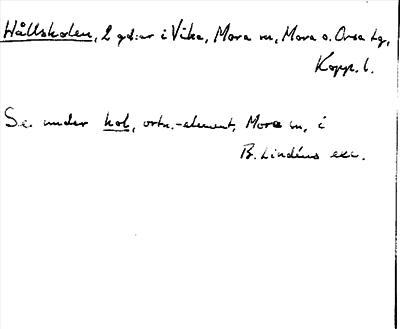 Hållskolen, 2 gd:ar i Vika, Mora sn, Mora o. Orsa tg,
Kopp. l.
Se under kol, ortn.-element, Mora sn, i
B. Lindéns exc.